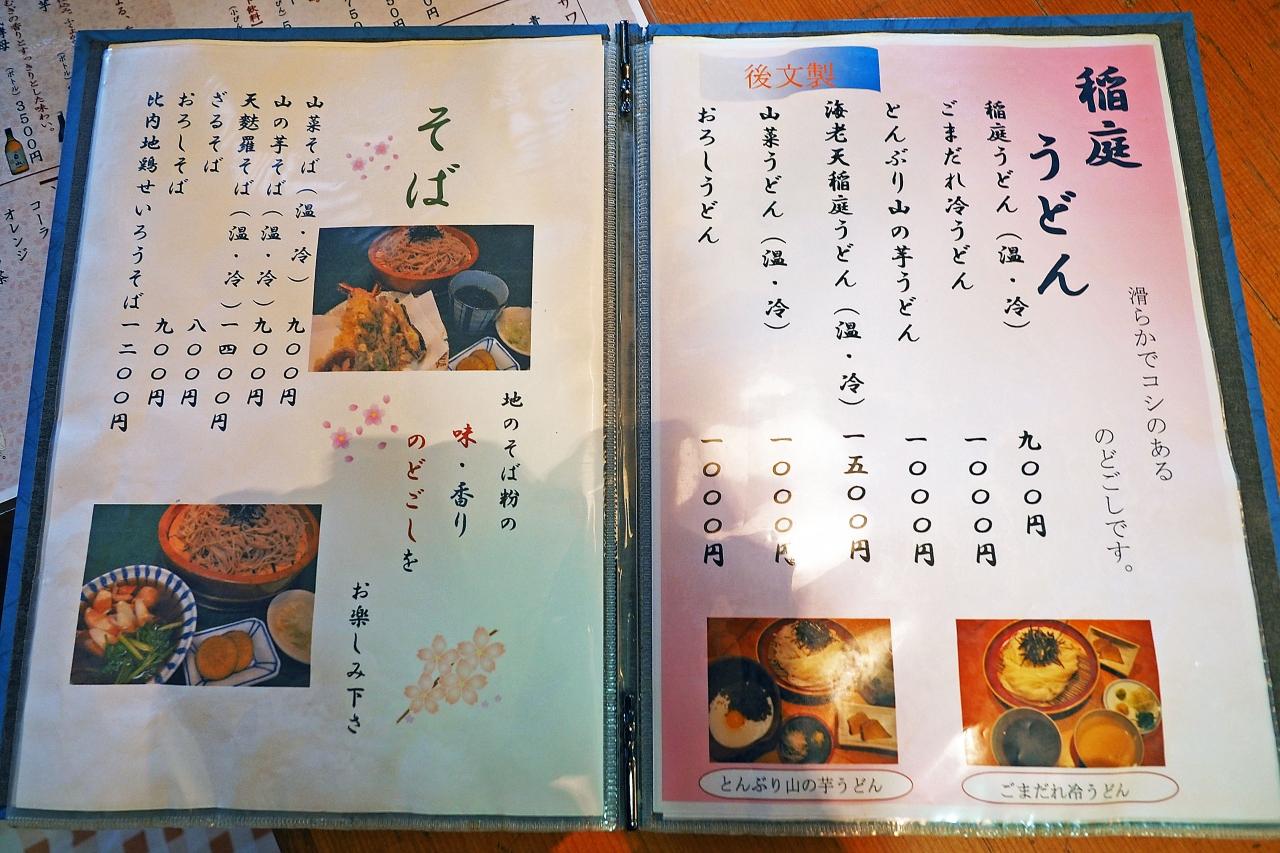 稲庭
うどん
滑らかでコシのある
のどごしです。
後文製
稲庭うどん（温・冷） 九〇〇円
ごまだれ冷うどん 一〇〇〇円
とんぶり山の芋うどん 一〇〇〇円
海老天稲庭うどん（温・冷） 一五〇〇円
山菜うどん（温・冷） 一〇〇〇円
おろしうどん 一〇〇〇円
とんぶり山の芋うどん
ごまだれ冷うどん
そば
山菜そば（温・冷） 九〇〇円
山の芋そば（温・冷） 九〇〇円
天麩羅そば（温・冷） 一四〇〇円
ざるそば 八〇〇円
おろしそば 九〇〇円
比内地鶏せいろうそば 一二〇〇円
地のそば粉の
味・香り
のどごしを
お楽しみ下さ
すっきりとした味わい。
（ボトル）3500円
コーラ
オレンジ